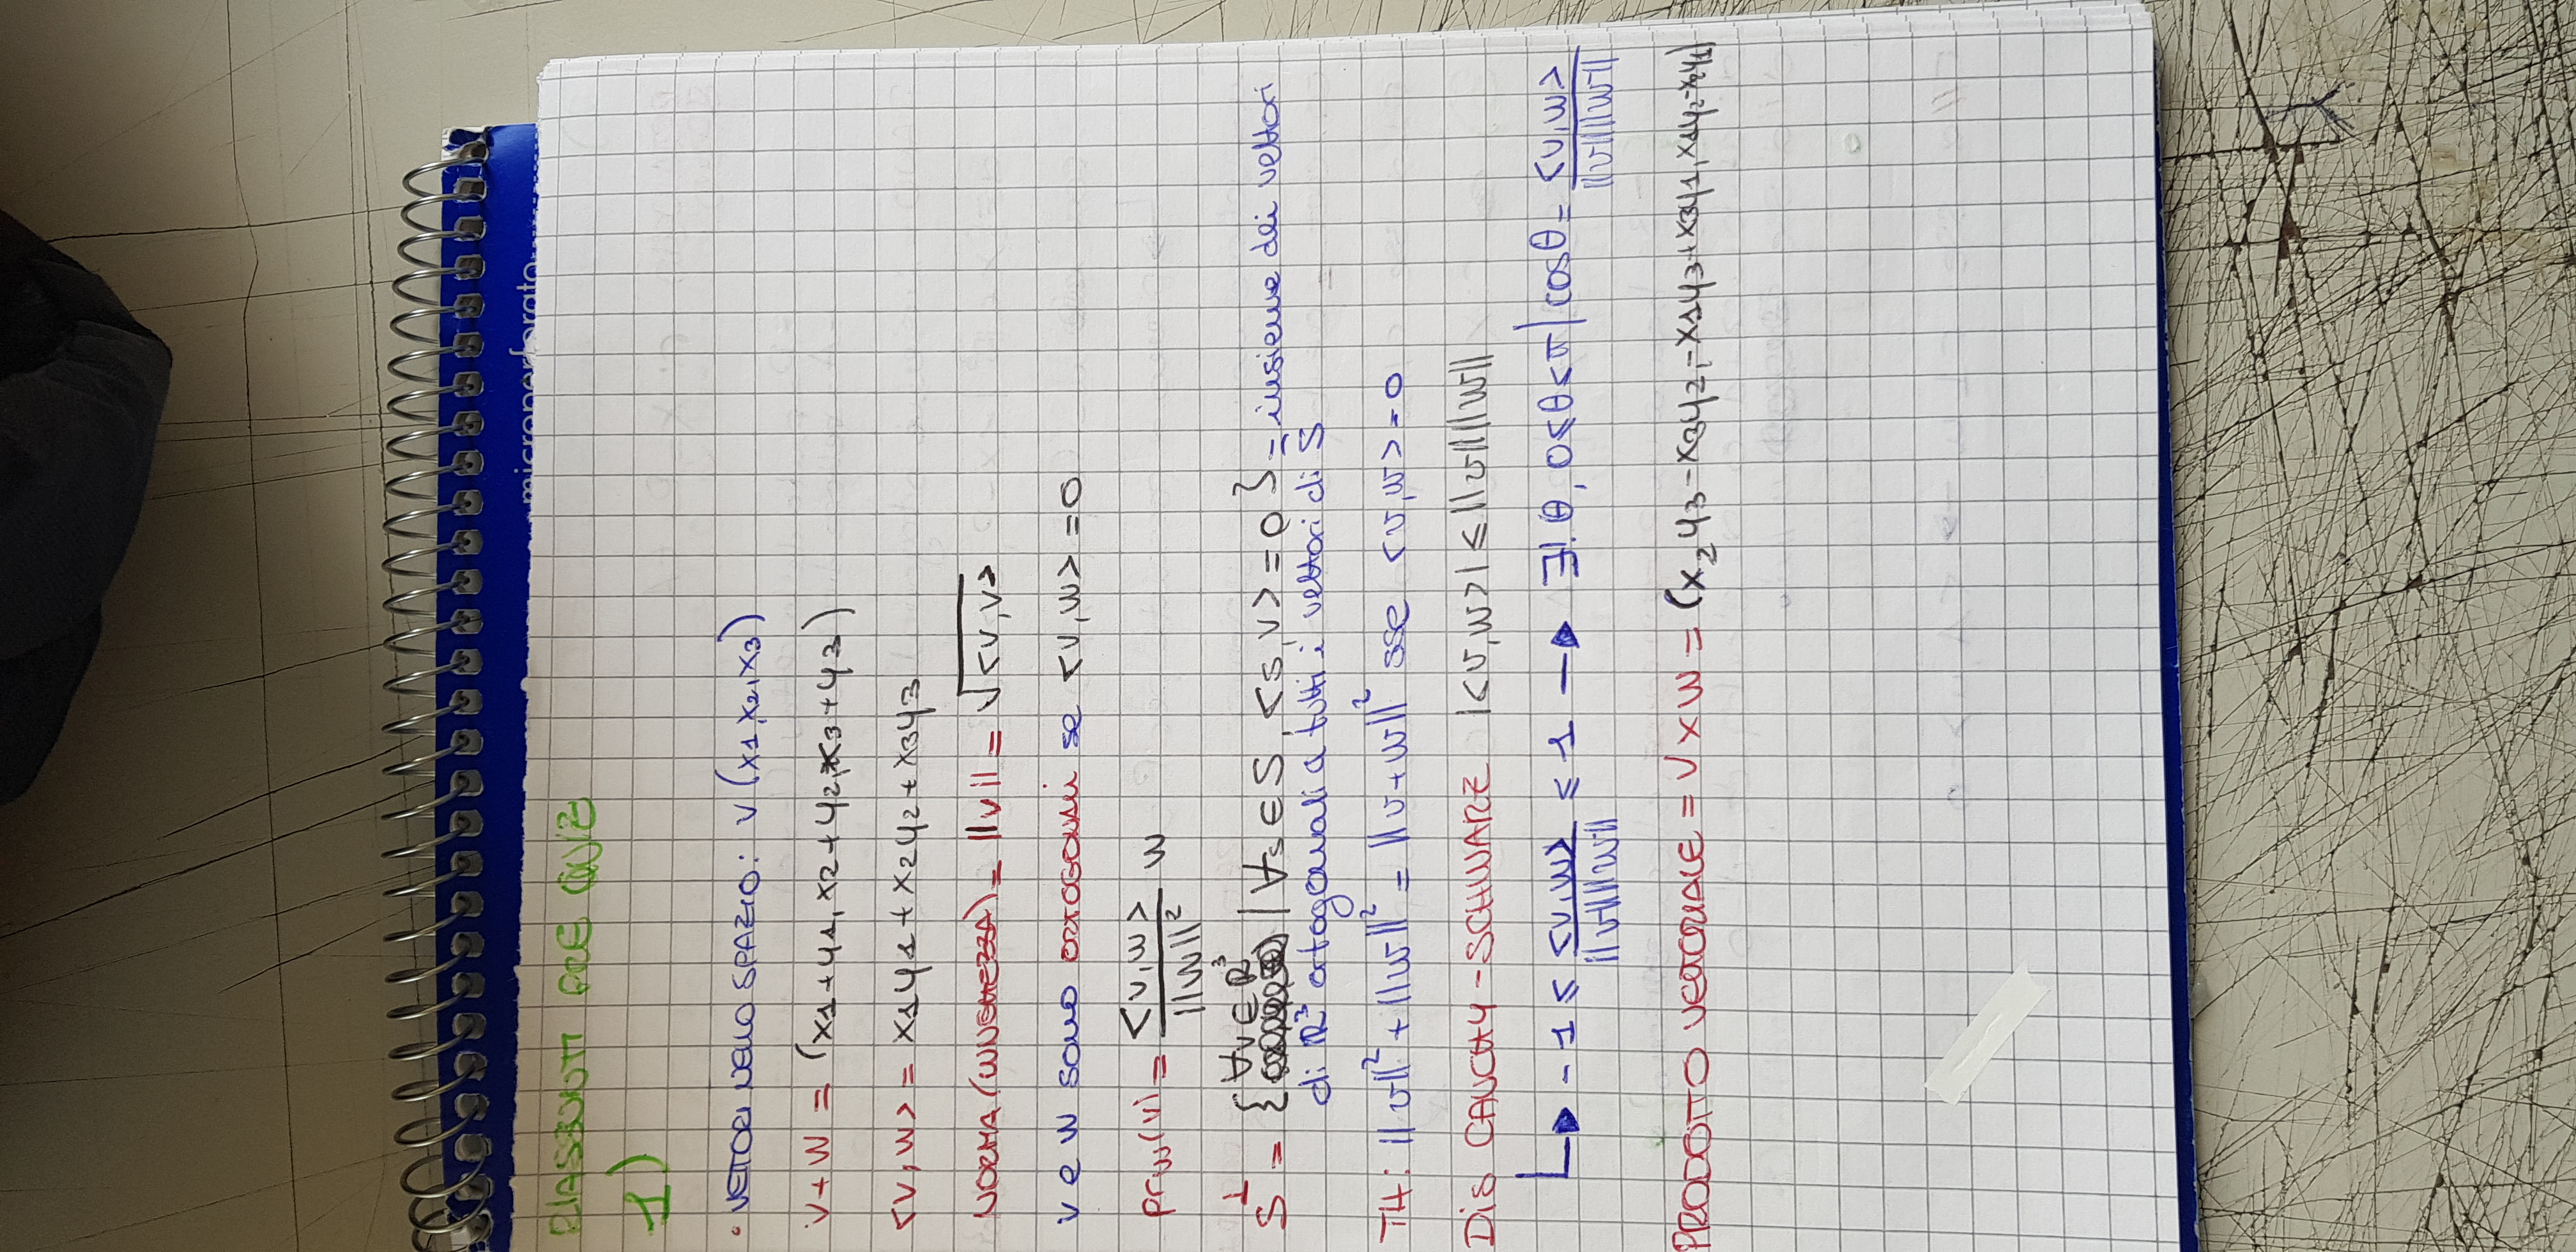 microperforato
RIASSUNTI PRE QUIZ
1)
• VETTORI NELLO SPAZIO: V (x1, x2, x3)
V+W = (x1+y1, x2+y2, x3+y3)
<v,w> = x1y1+x2y2+x3y3
NORMA (LUNGHEZZA) = ||v|| = √<v,v>
v e w sono ORTOGONALI se <v,w> = 0
prw(v) = <v,w>/||w||² w
S⊥ = {∀v∈ℝ³ | ∀s∈S, <s,v> = 0} = insieme dei vettori
di ℝ³ ortogonali a tutti i vettori di S
TH: ||v||² + ||w||² = ||v+w||² sse <v,w> = 0
DIS CAUCHY-SCHWARZ |<v,w>| ≤ ||v|| ||w||
↳ -1 ≤ <v,w>/||v|| ||w|| ≤ 1 → ∃! θ, 0≤θ≤π | cosθ = <v,w>/||v|| ||w||
PRODOTTO VETTORIALE = V×W = (x2y3-x3y2, -x1y3+x3y1, x1y2-x2y1)